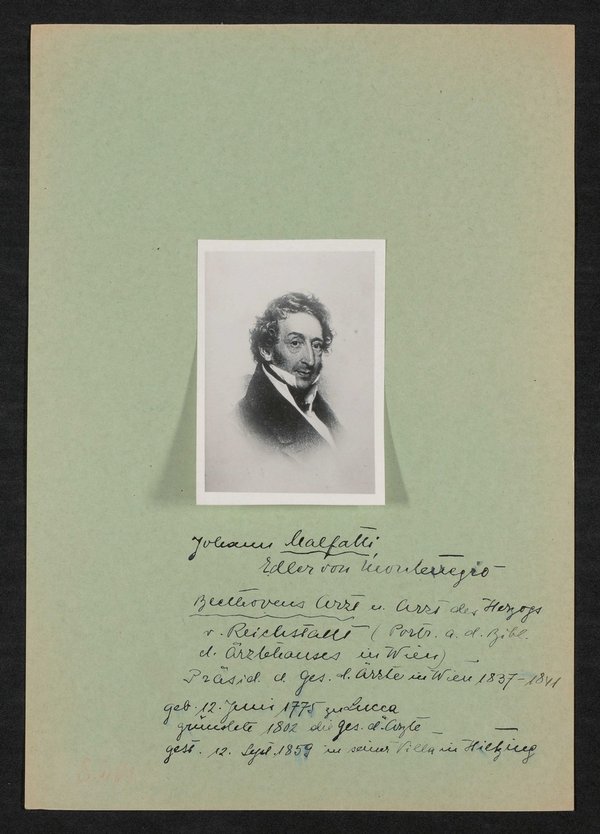 Johann Malfatti,
Edler von Monterregio
Beethovens Arzt u. Arzt des Herzogs
v. Reichstatt (Portr. a. d. Bibl.
d. Ärztehauses in Wien)
Präsid. d. Ges. d. Ärzte in Wien 1837-1841
geb. 12. Juni 1775 zu Lucca
gründete 1802 die Ges. d. Ärzte
gest. 12. Sept. 1859 in seiner Villa in Hitzing